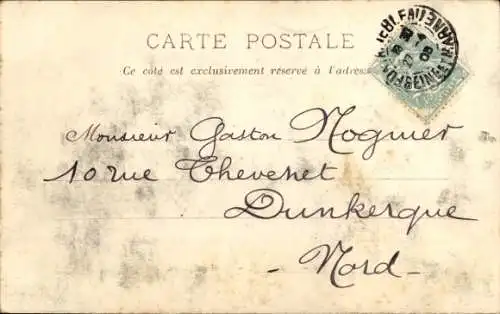 CARTE POSTALE
Ce côté est exclusivement réservé à l'adresse
Monsieur Gaston Nognier
10 rue Thevenet
Dunkerque
- Nord -